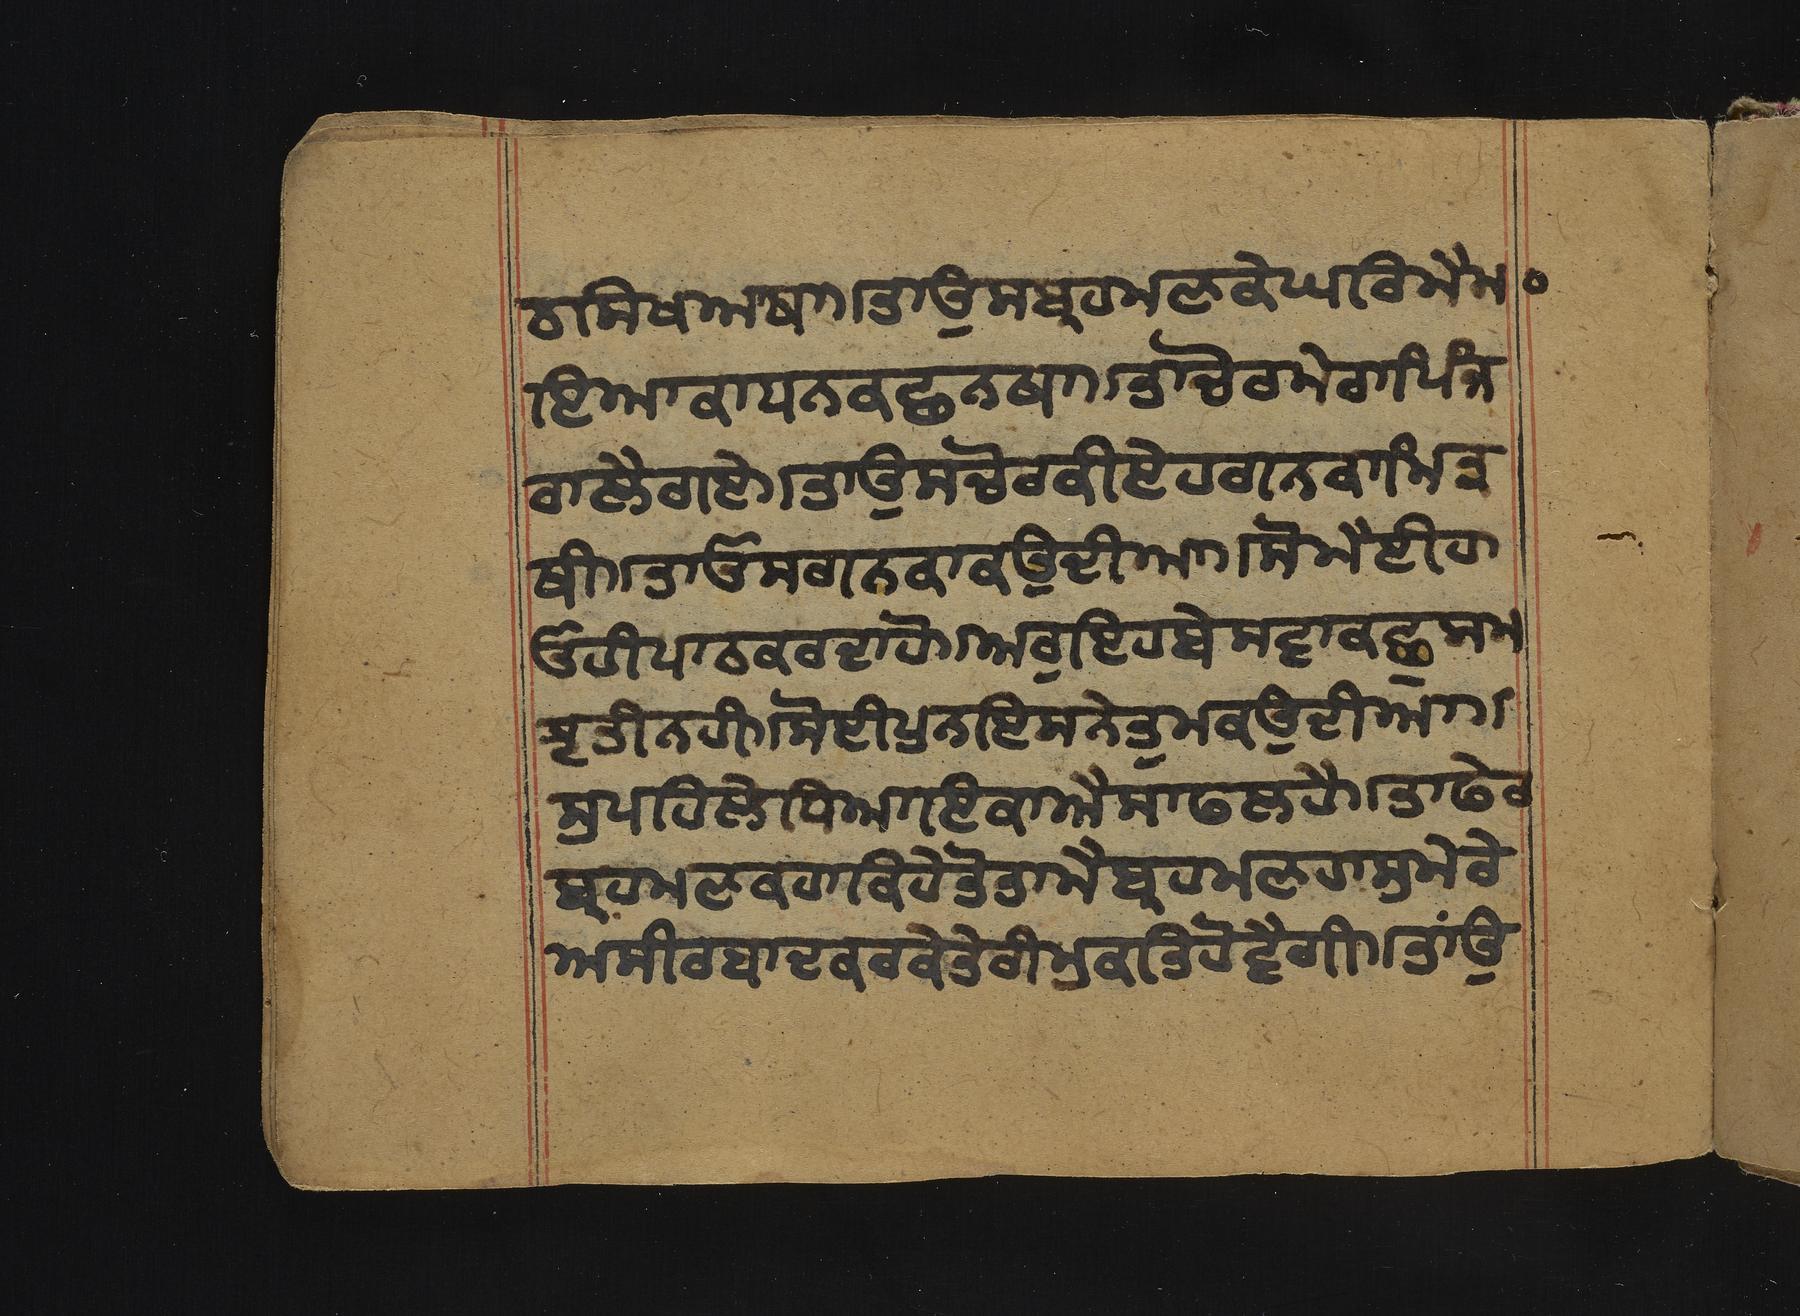 ਠਸਿਖਅਥਾ।ਤਾਉਸਬ੍ਰਹਮਣਕੇਘਰਿਮੈਮ੦
ਇਆਕਾਧਨਕਛੂਨਥਾ।ਤਾਚੋਰਮੇਰਾਪਿੰਜ
ਰਾਲੈਗਏ।ਤਾਉਸਚੋਰਕੀਏਹਗਨਕਾਮਿਤ੍ਰ
ਥੀ।ਤਾਓਸਗਨਕਾਕਉਦੀਆ।ਸੋਮੈਈਹਾ
ਓਹੀਪਾਠਕਰਦਾਹੋ।ਅਰੁਇਹਬੇਸਵਾਕਛੁਸਮ
ਝਤੀਨਹੀ।ਸੋਈਪੁਨਇਸਨੇਤੁਮਕਉਦੀਆ।
ਸੁਪਹਿਲੇਧਿਆਇਕਾਐਸਾਫਲਹੈ।ਤਾਫੇਰ
ਬ੍ਰਹਮਣਕਹਾਕਿਹੇਤੋਤਾਮੈਬ੍ਰਹਮਣਹਾਸੁਮੇਰੇ
ਅਸੀਰਬਾਦਕਰਕੇਤੇਰੀਮੁਕਤਿਹੋਵੈਗੀ।ਤਾਂਉ